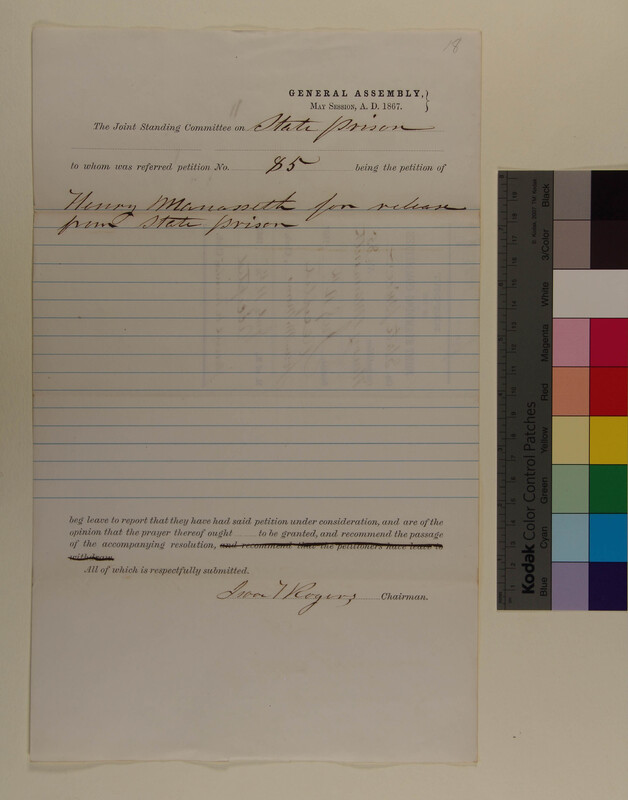 18
GENERAL ASSEMBLY,
MAY SESSION, A. D. 1867.
The Joint Standing Committee on State prison
to whom was referred petition No. 85 being the petition of
Henry Manasseth for release
from State prison
beg leave to report that they have had said petition under consideration, and are of the
opinion that the prayer thereof ought to be granted, and recommend the passage
of the accompanying resolution, and recommend that the petitioners have leave to
withdraw.
All of which is respectfully submitted.
Rogers Chairman.
Kodak Color Control Patches
Blue Cyan Green Yellow Red Magenta White 3/Color Black